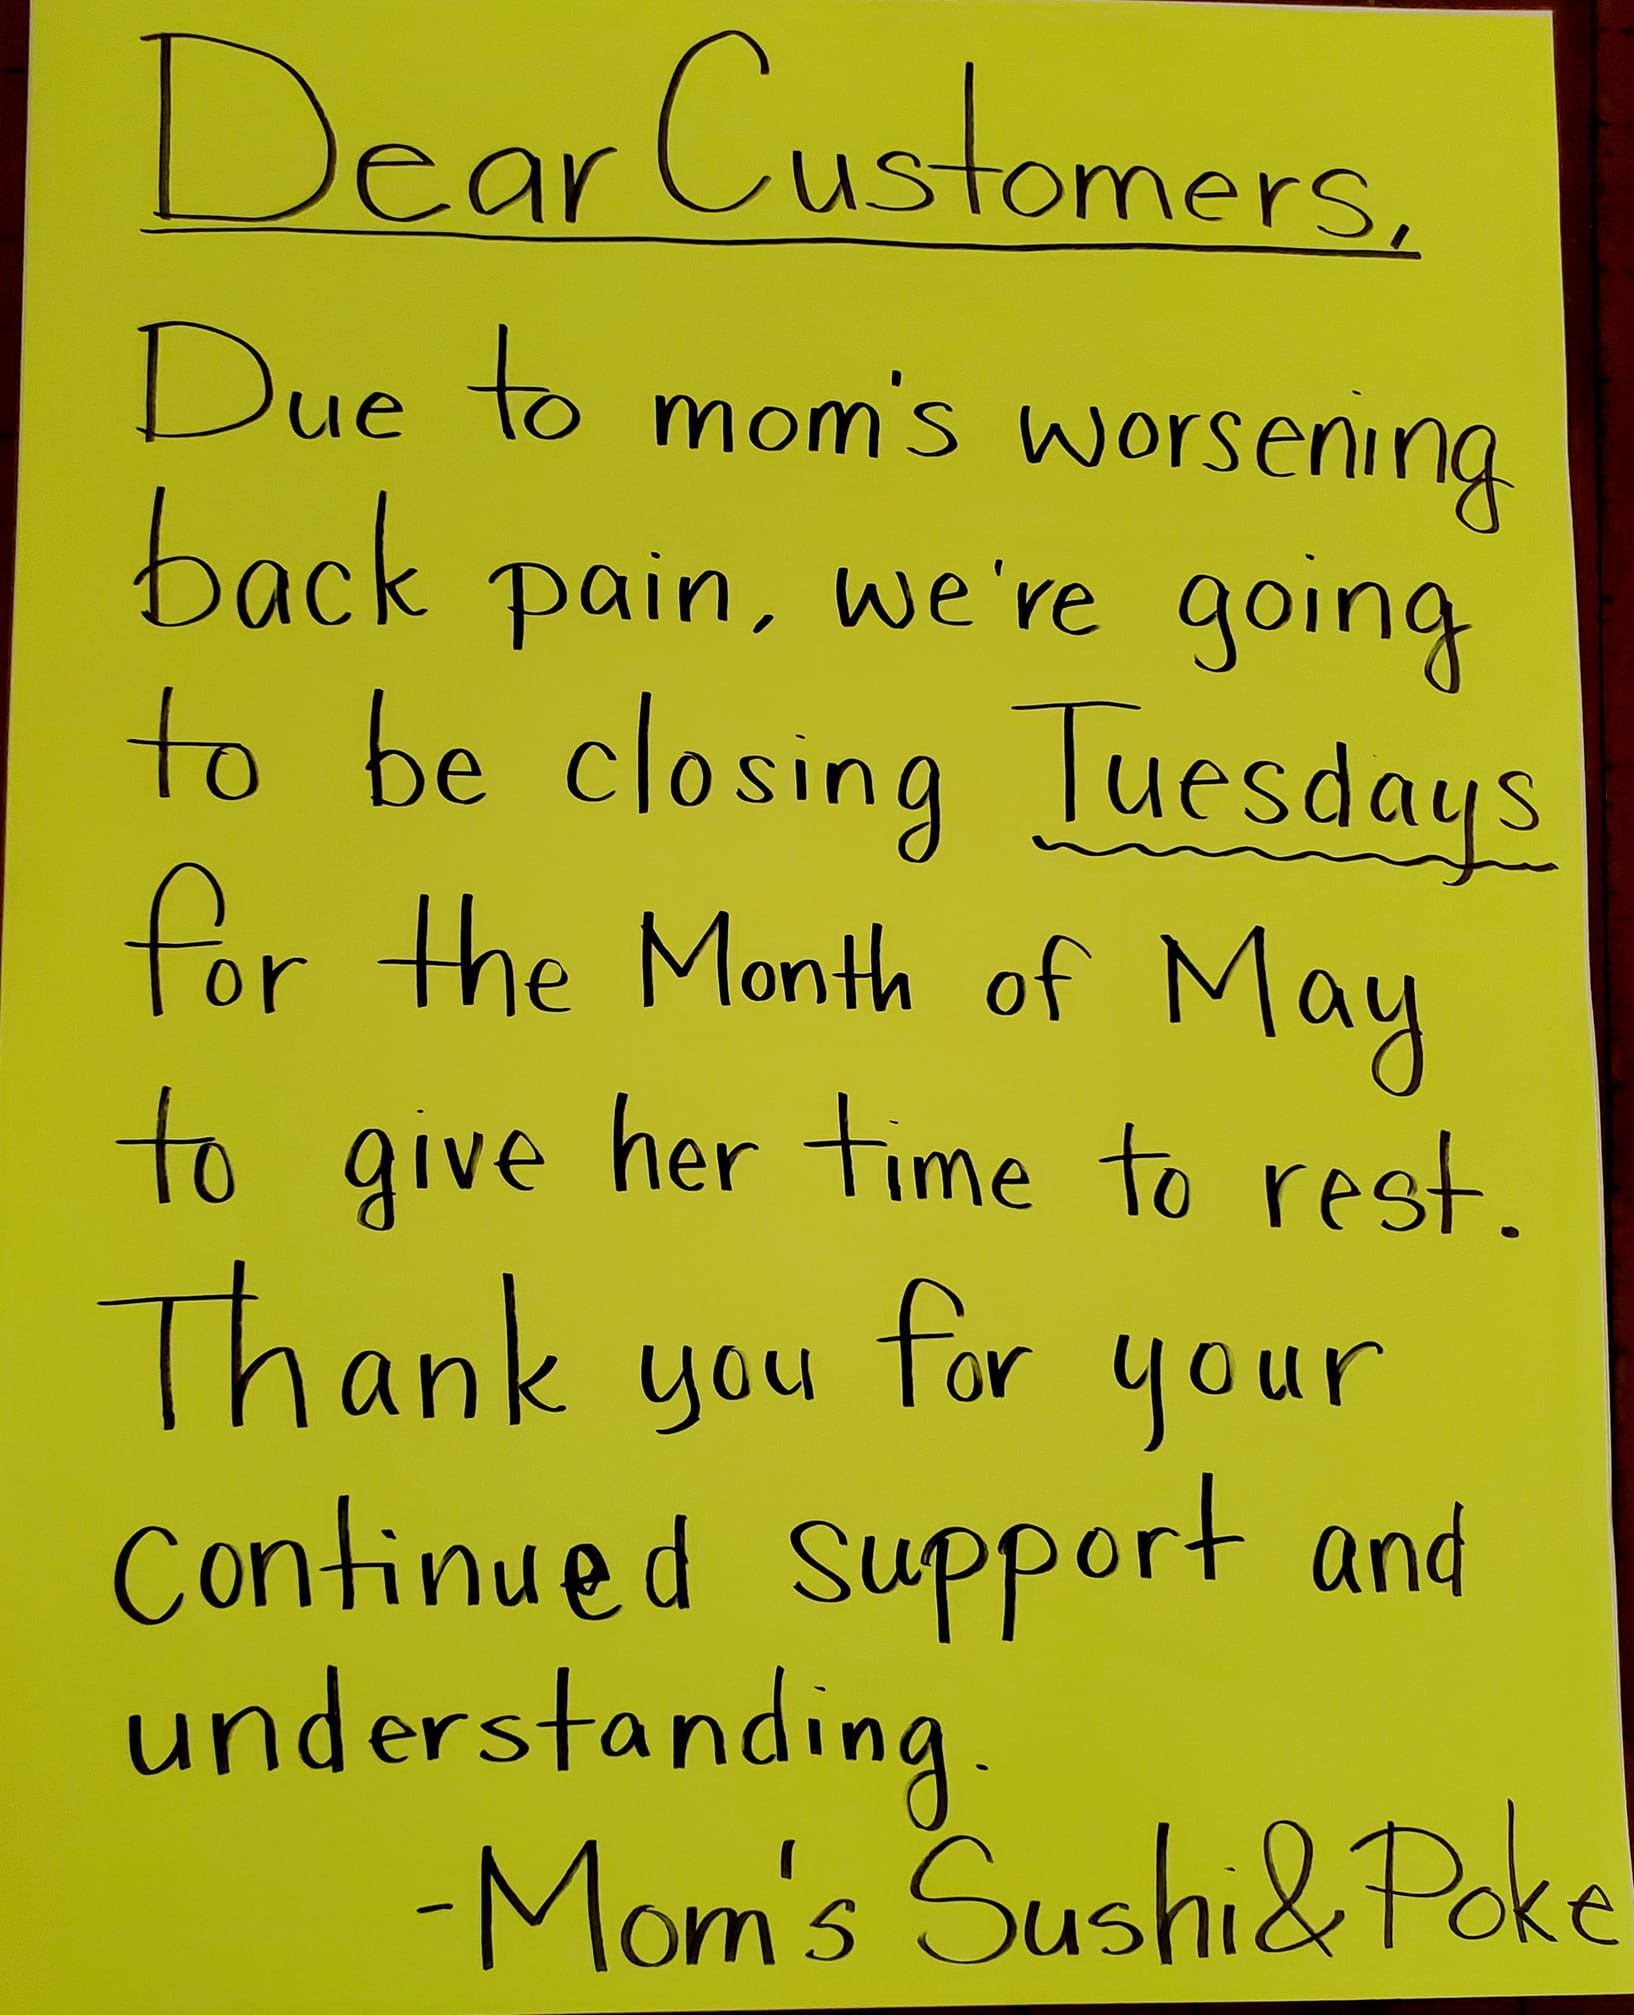 Dear Customers,
Due to mom's worsening
back pain, we're going
to be closing Tuesdays
for the Month of May
to give her time to rest.
Thank you for your
continued support and
understanding.
-Mom's Sushi & Poke